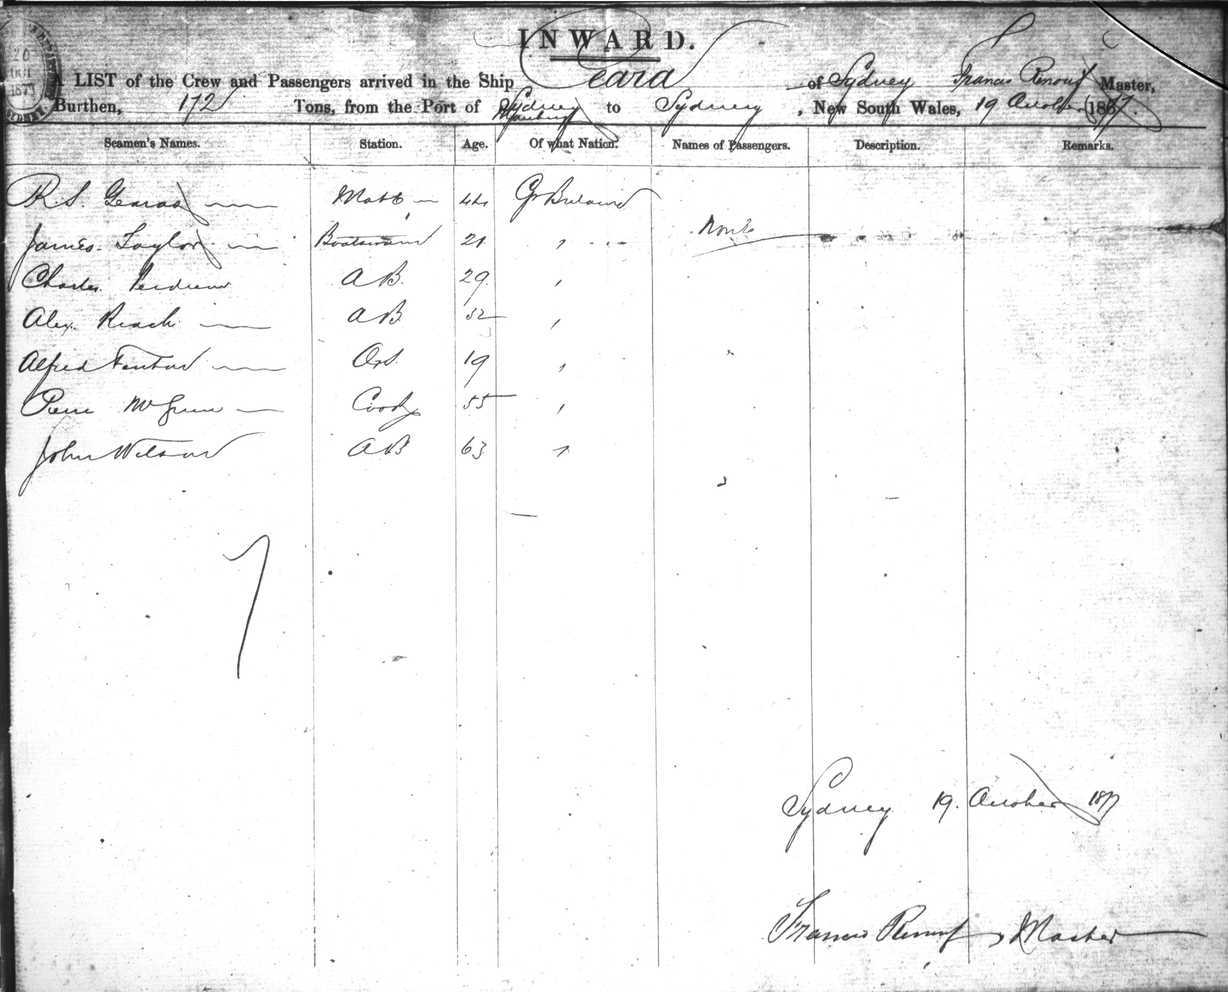 INWARD.
A LIST of the Crew and Passengers arrived in the Ship Ceara of Sydney Francis Renouf Master,
Burthen, 172 Tons, from the Port of to Sydney, New South Wales, 19 October 1877.
Seamen's Names. Station. Age. Of what Nation. Names of Passengers. Description. Remarks.
R. S. Mate 44 Gt Britain
James Taylor Boatswain 21 " None
Charles AB. 29 "
Alex. AB 32 "
Alfred O.S. 19 "
Cook 55 "
John Wilson AB 63 "
7
Sydney 19. October 1877
Francis Renouf, Master